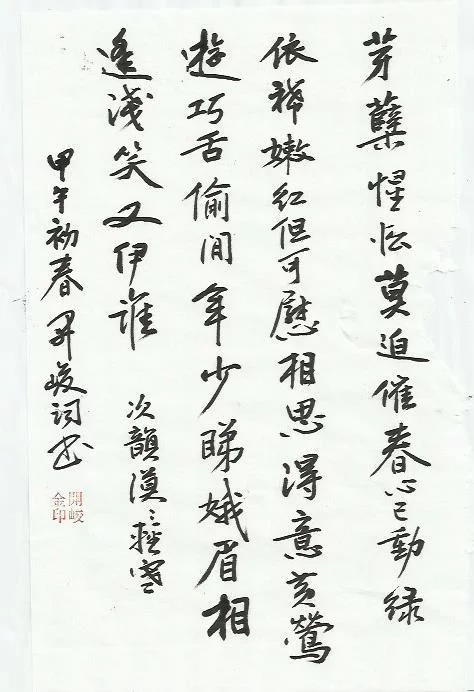 芽蘖惺忪莫迫催春心已動緑
依稀嫩紅但可慰相思得意黄鶯
遊巧舌偷閒年少睇娥眉相
逢淺笑又伊誰
次韻漠〻輕寒
甲午初春开峻词书
開峻
金印